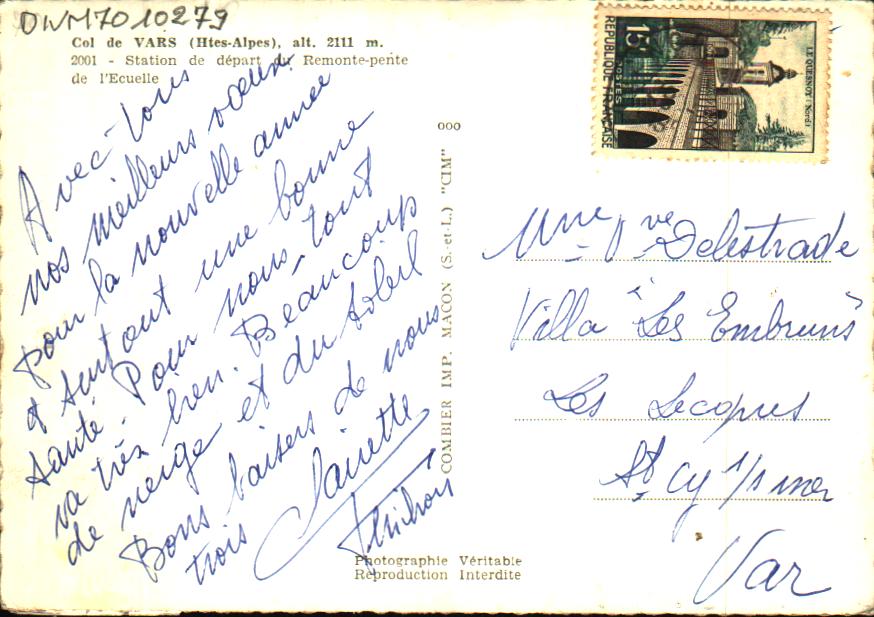 DWM7010279
Col de VARS (Htes-Alpes), alt. 2111 m.
2001 - Station de départ du Remonte-pente
de l'Ecuelle
Avec tous
nos meilleurs voeux
pour la nouvelle année
et surtout une bonne
santé. Pour nous tout
va très bien. Beaucoup
de neige et du soleil
Bons baisers de nous
trois
COMBIER IMP. MACON (S.-et-L.) "CIM"
Photographie Véritable
Reproduction Interdite
REPUBLIQUE FRANÇAISE
15F
POSTES
LE QUESNOY (Nord)
Mme Vve Delestrade
Villa "Les Embruns"
Les Lecques
St Cyr s/s mer
Var